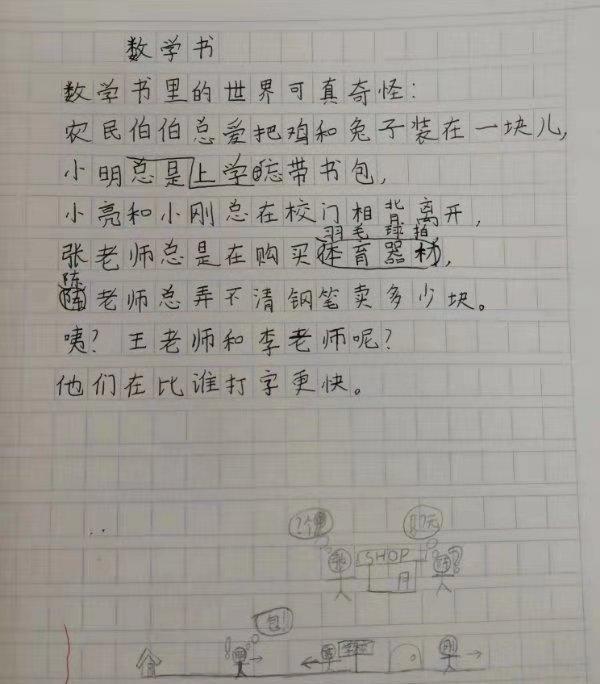 数学书
数学书里的世界可真奇怪:
农民伯伯总爱把鸡和兔子装在一块儿,
小明总是上学忘带书包,
小亮和小刚总在校门相背离开,
羽毛球拍
张老师总是在购买体育器材,
陈
陈老师总弄不清钢笔卖多少块。
咦?王老师和李老师呢?
他们在比谁打字更快。
SHOP
包!